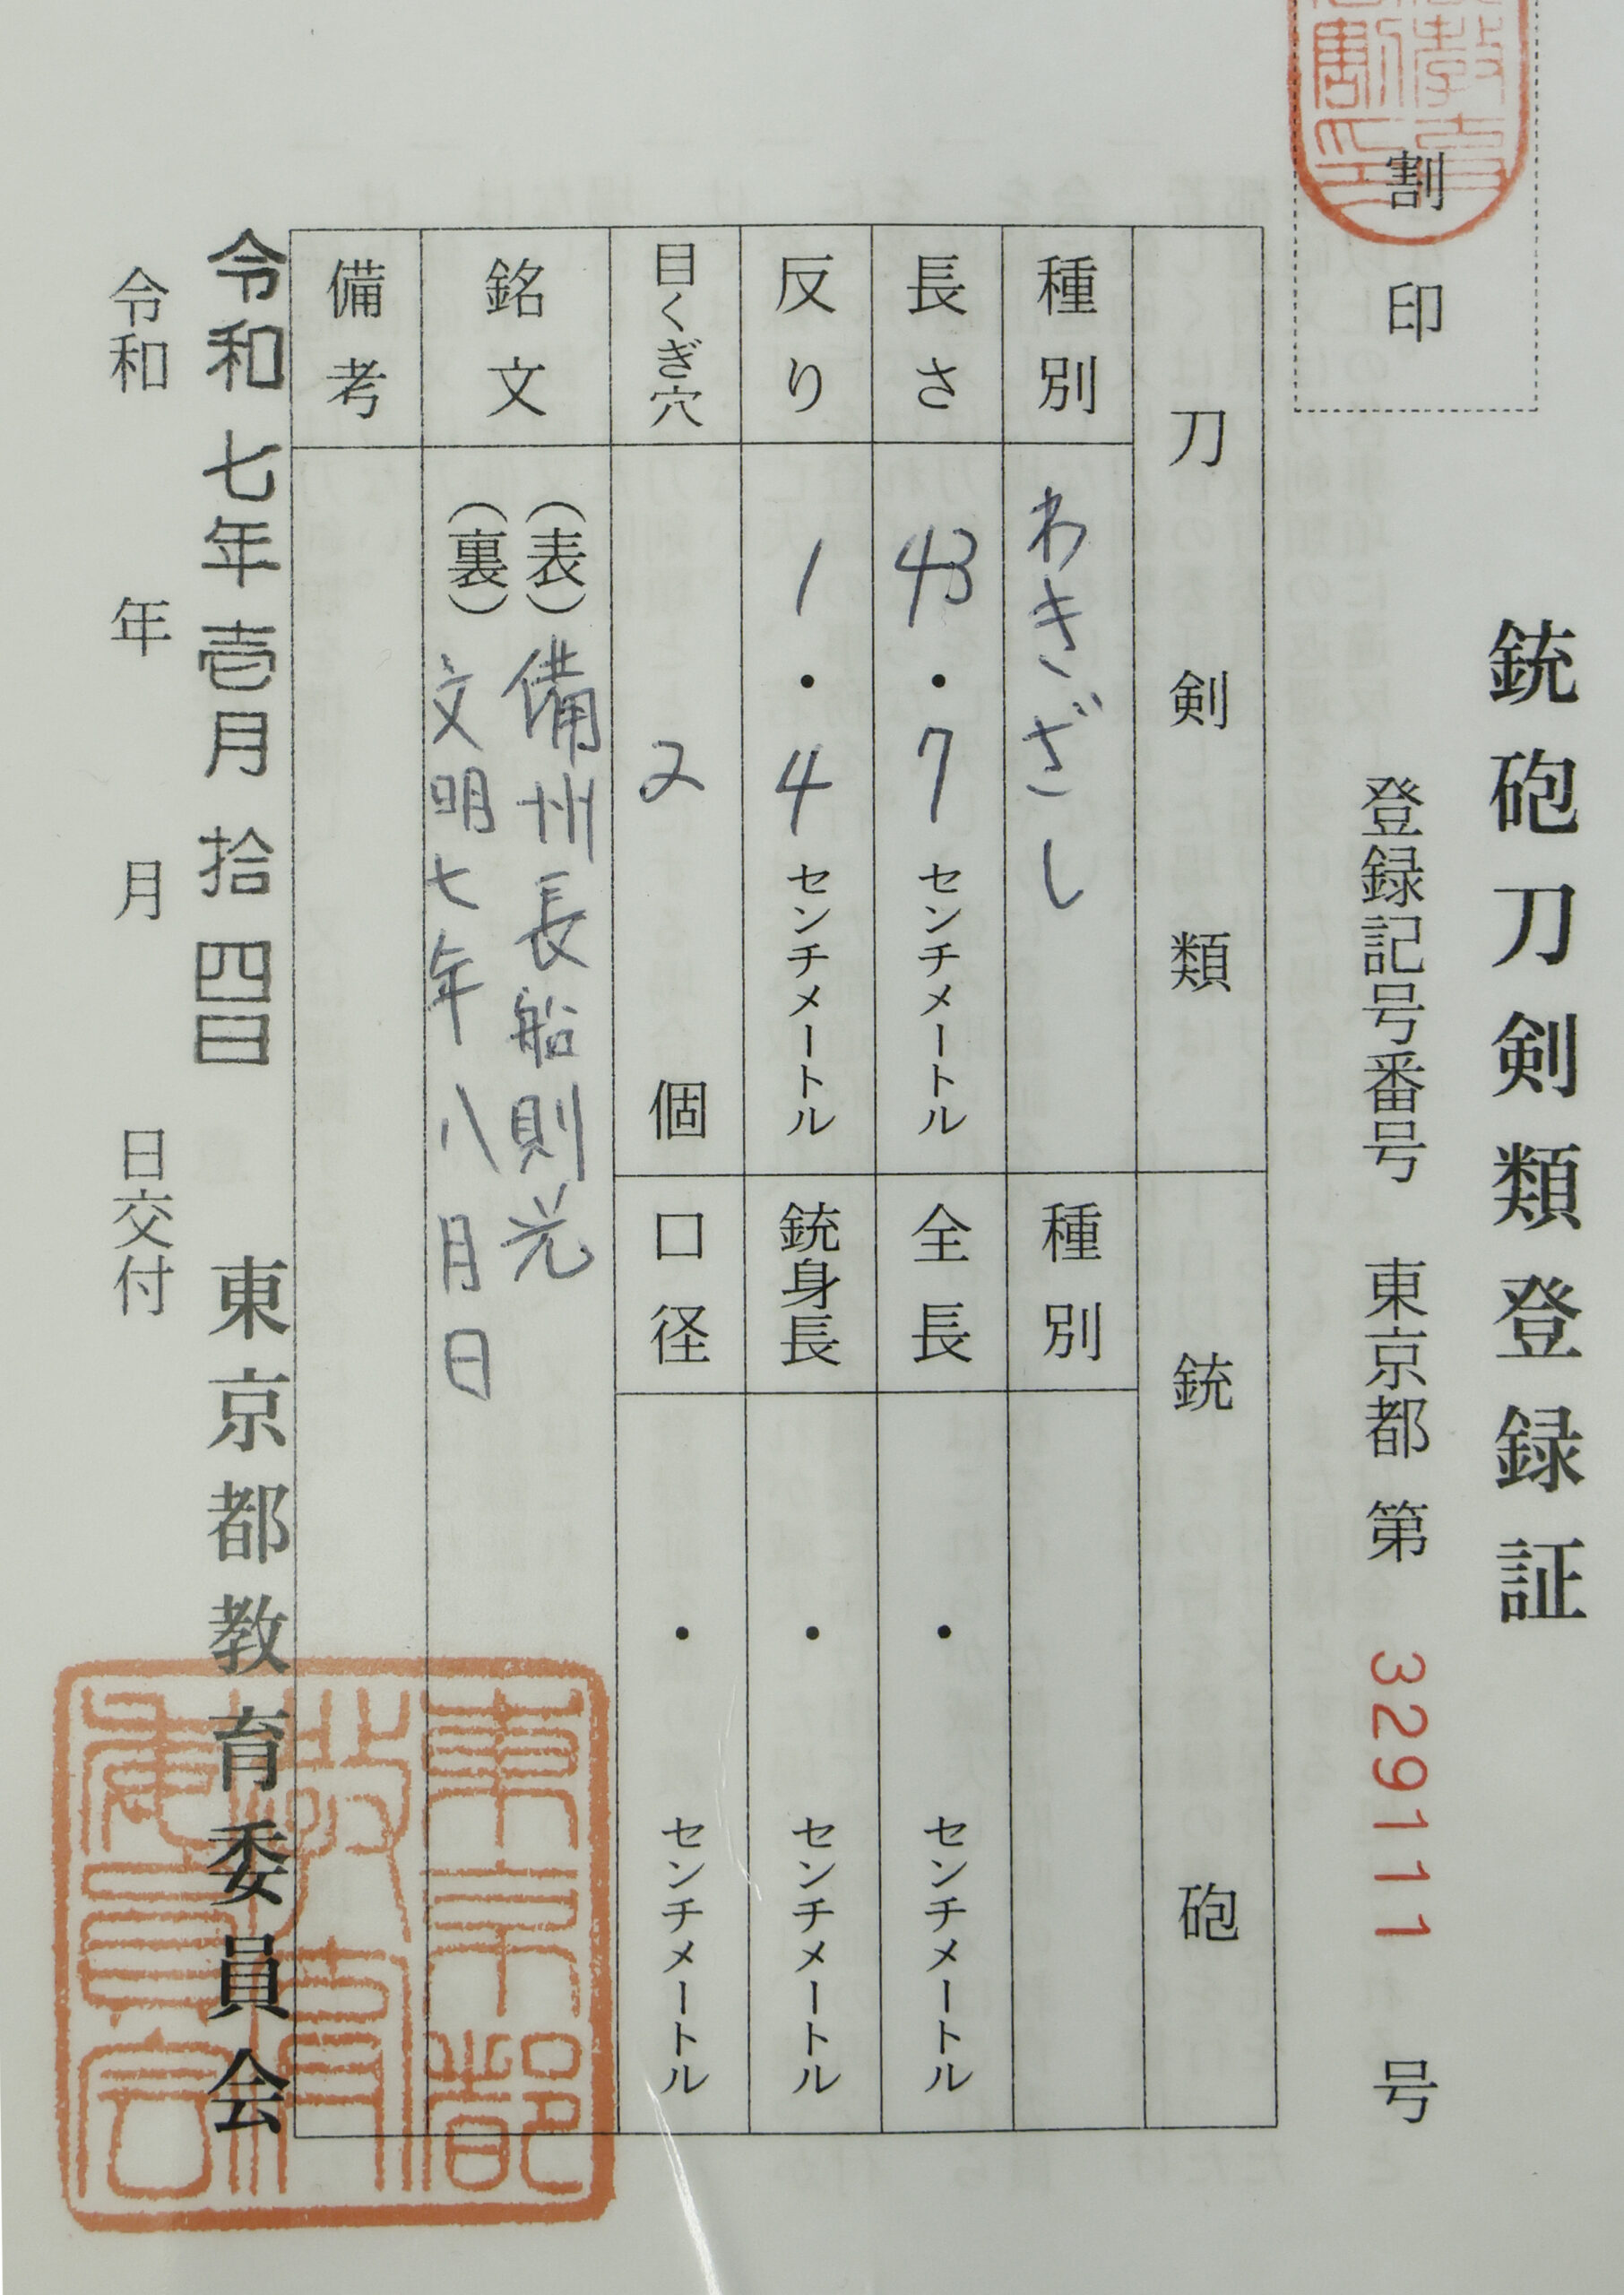 銃砲刀剣類登録証
登録記号番号 東京都 第 329111 号
割印
刀剣類
銃砲
種別 わきざし
種別
長さ 43・7センチメートル
全長 ・ センチメートル
反り 1・4センチメートル
銃身長 ・ センチメートル
目くぎ穴 2 個
口径 ・ センチメートル
銘文
(表)備州長船則光
(裏)文明七年八月日
備考
令和七年壱月拾四日 東京都教育委員会
令和 年 月 日交付
東京都教育委員会